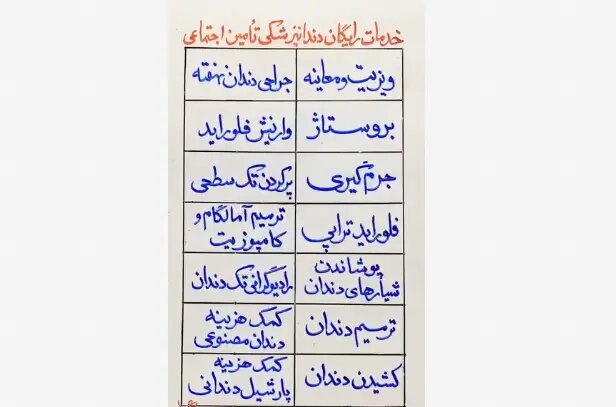 خدمات رایگان دندانپزشکی تأمین اجتماعی
ویزیت و معاینه
جراحی دندان نهفته
بروستاژ
وارنیش فلوراید
جرم گیری
پرکردن تک سطحی
فلوراید تراپی
ترمیم آمالگام و
کامپوزیت
پوشاندن
شیارهای دندان
رادیوگرافی تک دندان
ترمیم دندان
کمک هزینه
دندان مصنوعی
کشیدن دندان
کمک هزینه
پارشیل دندانی